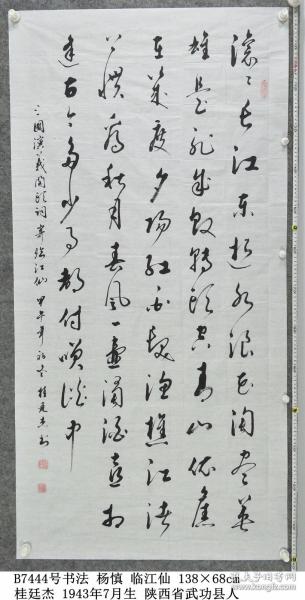 滚〻长江东逝水浪花淘尽英
雄是非成败转头空青山依旧
在几度夕阳红白发渔樵江渚
上惯看秋月春风一壶浊酒喜相
逢古今多少事都付笑谈中
三国演义开头词寄临江仙 甲午年 桂廷杰书
B7444号书法 杨慎 临江仙 138×68cm
桂廷杰 1943年7月生 陕西省武功县人